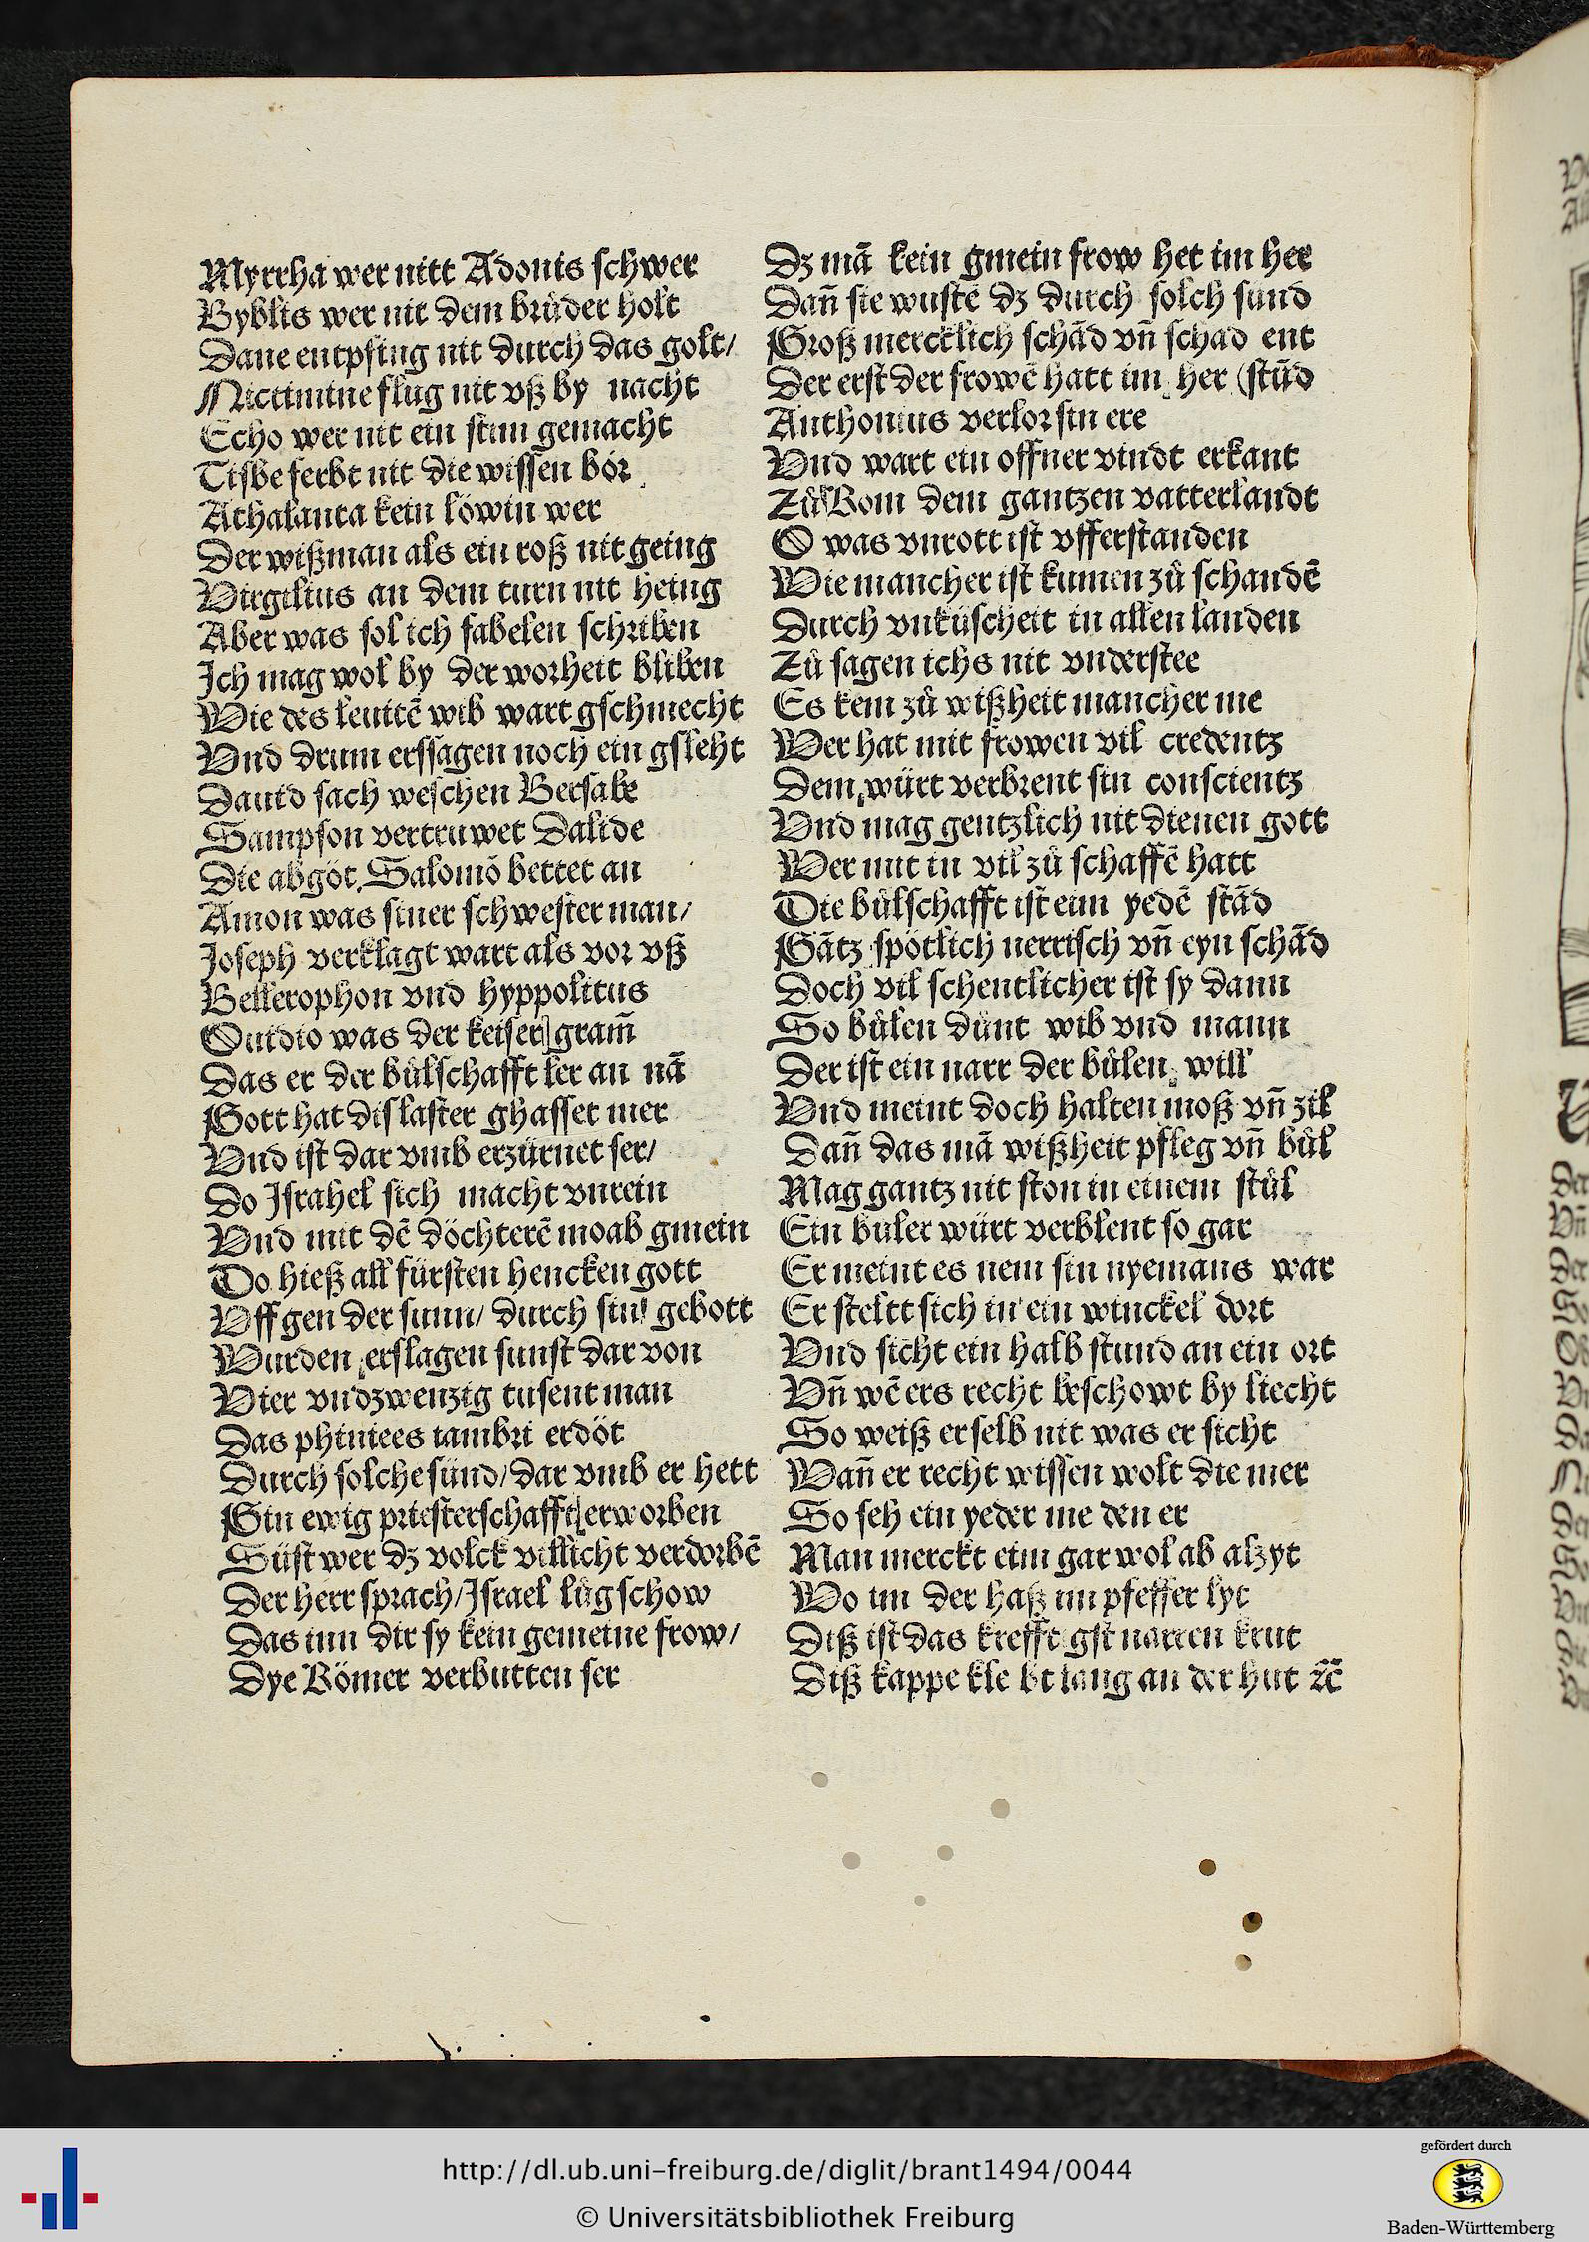 Myrrha wer nitt Adonis schwer
Byblis wer nit dem brůder holt
Dane entpfing nit durch das golt/
Nictimine flug nit vß by nacht
Echo wer nit ein stim gemacht
Tisbe ferbt nit die wissen bör
Athalanta kein löwin wer
Der wißman als ein roß nit geing
Virgilius an dem turn nit heing
Aber was sol ich fabelen schriben
Ich mag wol by der worheit bliben
Wie des leuitē wib wart gschmecht
Vnd drum erssagen noch ein gsleht
Dauid sach weschen Bersabe
Sampson vertruwet Dalide
Die abgöt Salomō bettet an
Amon was siner schwester man/
Joseph verklagt wart als vor vß
Bellerophon vnd hyppolitus
Ouidio was der keiser gram̄
Das er der bůlschafft ler an nā
Gott hat dis laster ghasset mer
Vnd ist dar vmb erzürnet ser/
Do Israhel sich macht vnrein
Vnd mit dē döchterē moab gmein
Do hieß all fürsten hencken gott
Vff gen der sunn/ durch sin gebott
Wurden erslagen sunst dar von
Vier vnd zwenzig tusent man
Das phinees iambri erdöt
Durch solche sünd/ dar vmb er hett
Ein ewig priesterschafft erworben
Süst wer dz volck villicht verdorbē
Der herr sprach/ Israel lůg schow
Das inn dir sy kein gemeine frow/
Dye Römer verbutten ser
Dz mā kein gmein frow het im her
Dan̄ sie wustē dz durch solch sund
Groß mercklich schād vn̄ schad ent
Der erst der frowē hatt im her (stūd
Anthonius verlor sin ere
Vnd wart ein offner vindt erkant
Zů Rom dem gantzen vatterlandt
O was vnrott ist vfferstanden
Wie mancher ist kumen zů schandē
Durch vnküscheit in allen landen
Zů sagen ichs nit vnderstee
Es kem zů wißheit mancher me
Wer hat mit frowen vil credentz
Dem würt verbrent sin conscientz
Vnd mag gentzlich nit dienen gott
Wer mit in vil zů schaffē hatt
Die bůlschafft ist eim yedē stād
Gātz spötlich nerrisch vn̄ eyn schād
Doch vil schentlicher ist sy dann
So bůlen dünt wib vnd mann
Der ist ein narr der bůlen will
Vnd meint doch halten moß vn̄ zil
Dan̄ das mā wißheit pfleg vn̄ bůl
Mag gantz nit ston in einem stůl
Ein buler würt verblent so gar
Er meint es nem sin nyemans war
Er steltt sich in ein winckel dort
Vnd sicht ein halb stund an ein ort
Vn̄ wē ers recht beschowt by liecht
So weiß er selb nit was er sicht
Wan̄ er recht wissen wolt die mer
So seh ein yeder me den er
Man merckt eim gar wol ab alzyt
Wo im der haß im pfeffer lyt
Diß ist das krefftigst narren krut
Diß kappe kle bt lang an der hut ꝛc̄
http://dl.ub.uni-freiburg.de/diglit/brant1494/0044
© Universitätsbibliothek Freiburg
gefördert durch
Baden-Württemberg